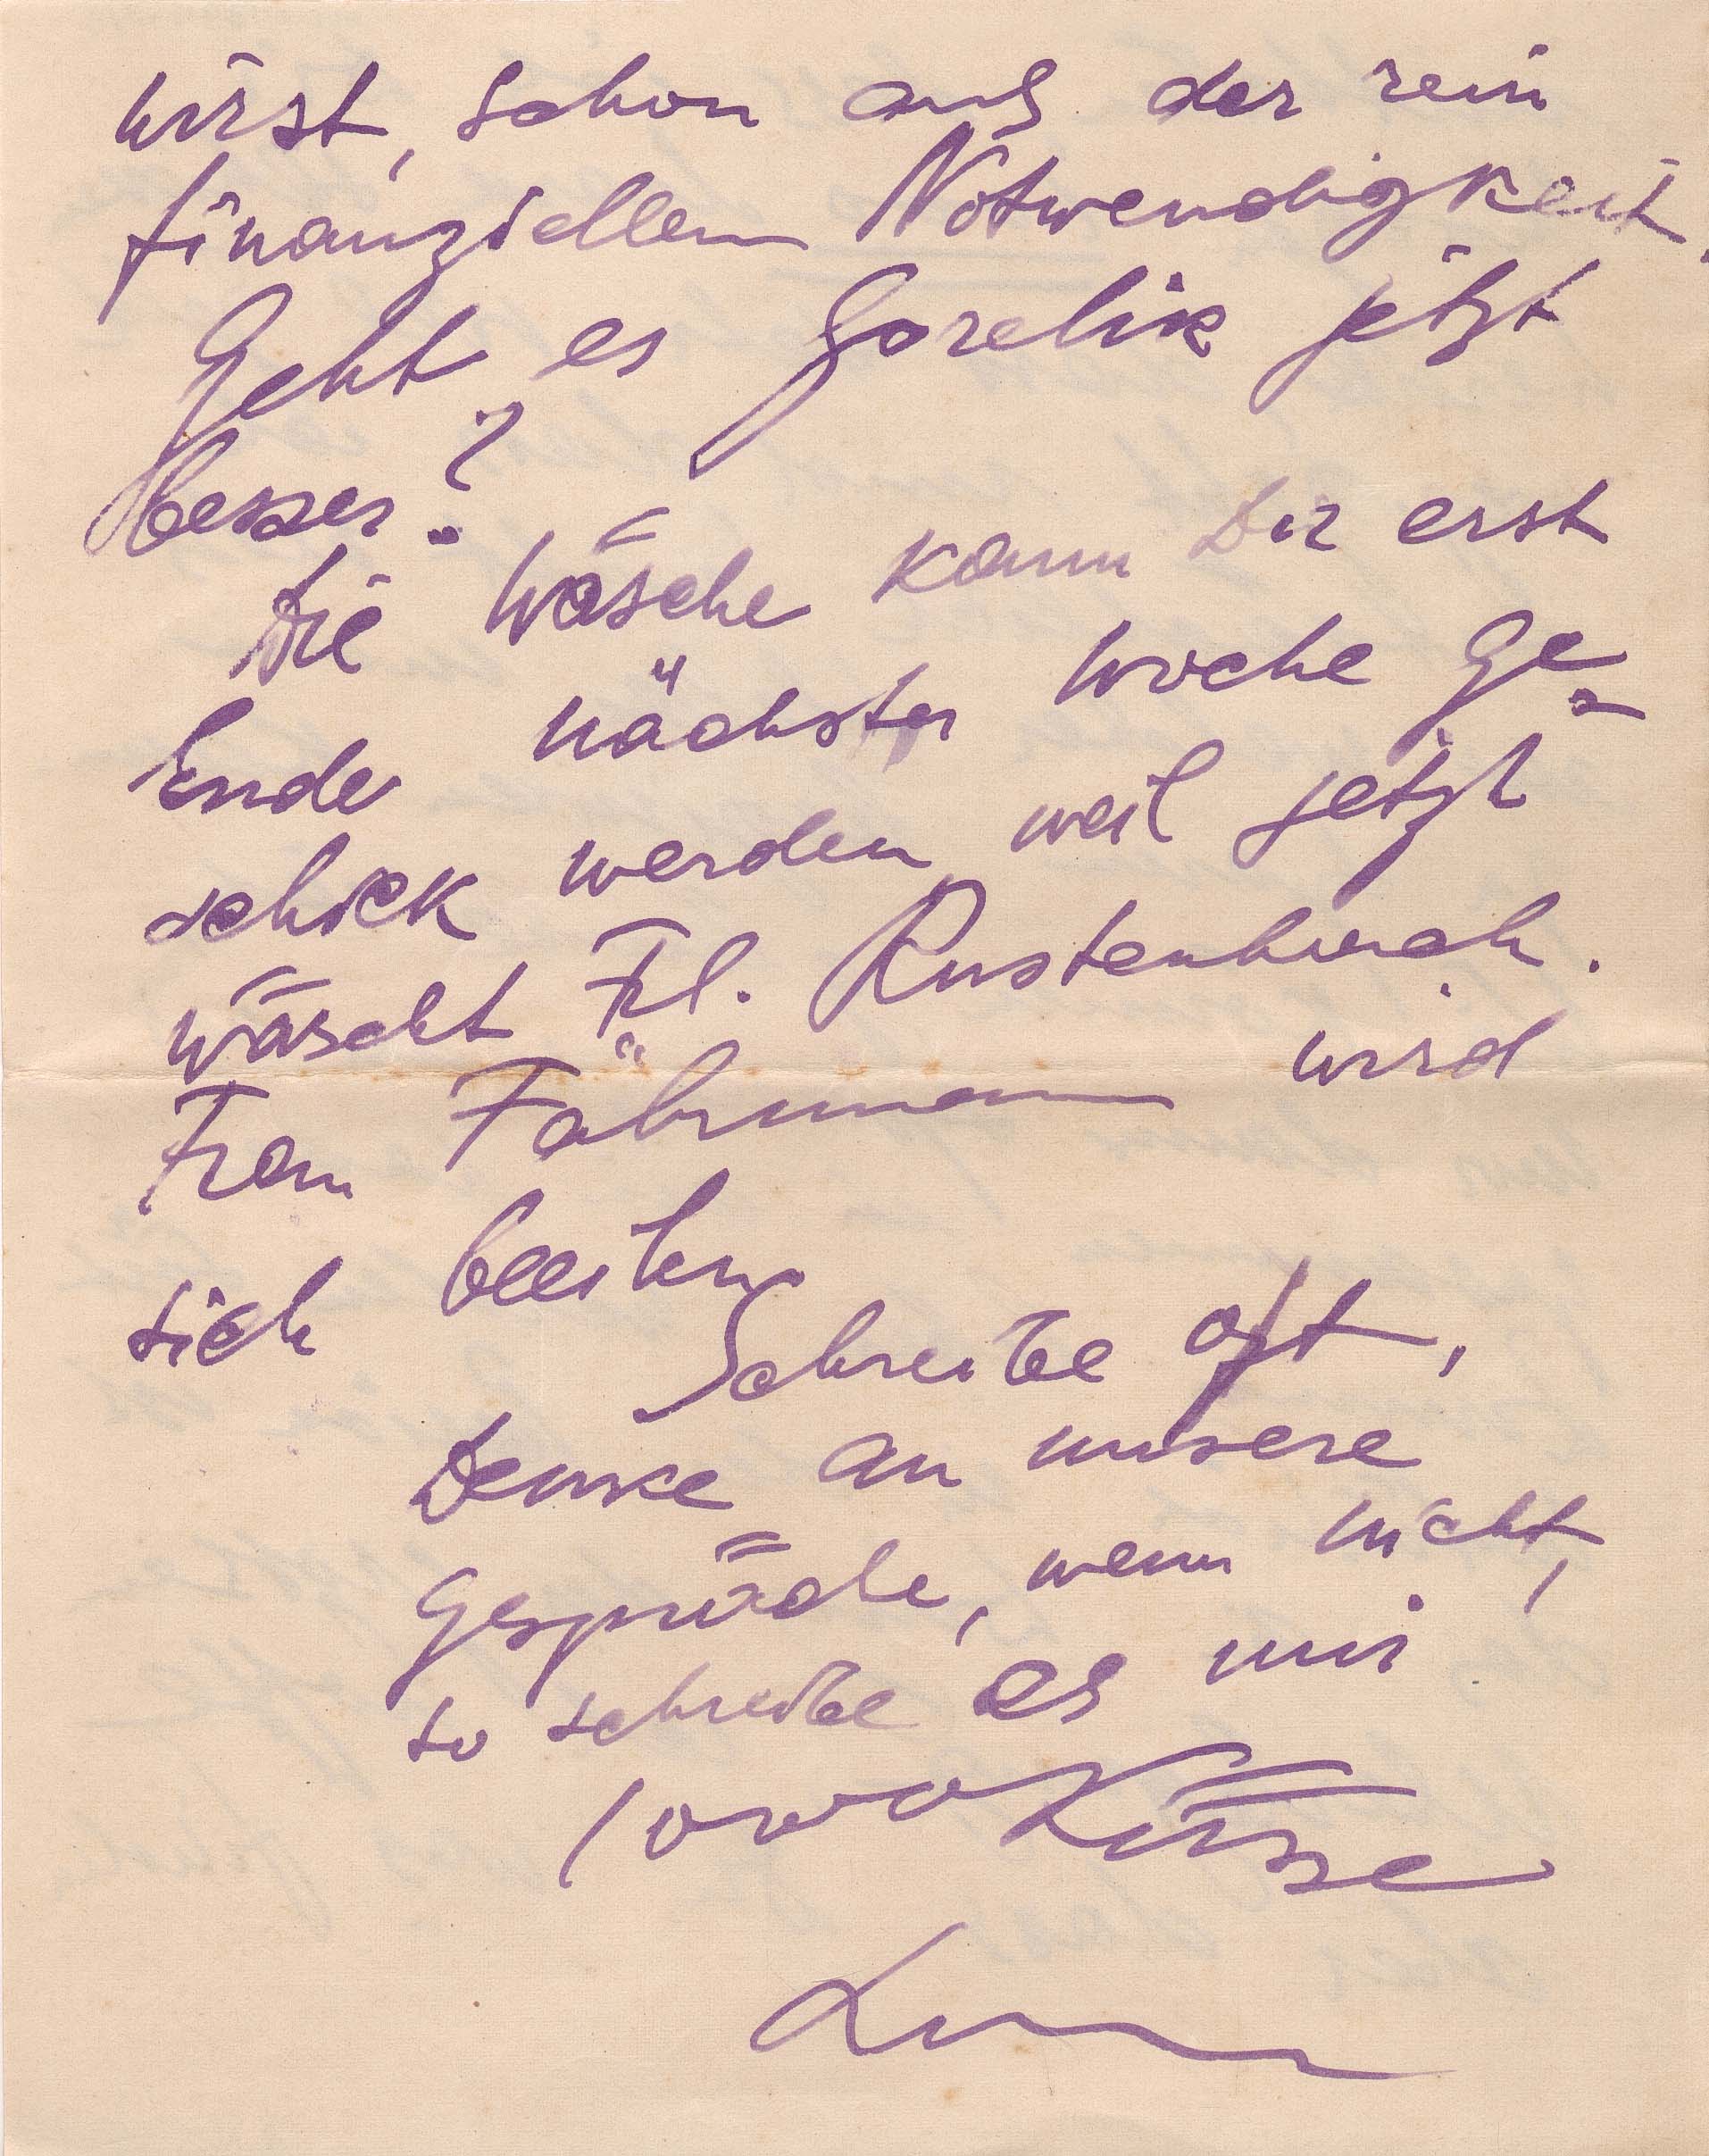 wirst, schon aus der rein
finanziellen Notwendigkeit.
Geht es Gorelik jetzt
besser?
Die Wäsche kann Dir erst
Ende nächster Woche ge-
schick werden weil jetzt
wäscht Frl.
Frau wird
sich
Schreibe oft,
Denke an unsere
Gespräche, wenn nicht,
so schreibe es mir
1000 Küsse